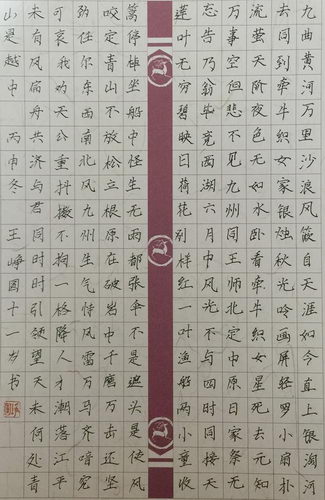 九曲黄河万里沙浪淘风簸自天涯如今直上银河
去到牵牛织女家银烛秋光冷画屏轻罗小扇扑
流萤天阶夜色凉如水卧看牵牛织女星死去元知
万事空但悲不见九州同王师北定中原日家祭无
忘告乃翁毕竟西湖六月中风光不与四时同接天
莲叶无穷碧映日荷花别样红一叶渔船两小童收
篙停棹坐船中怪生无雨都张伞不是遮头是使风
咬定青山不放松立根原在破岩中千磨万击还坚
劲任尔东西南北风九州生气恃风雷万马齐喑究
可哀我劝天公重抖擞不拘一格降人才潮落江平
未有风舟共济与君同时时引领望天末何处青
山是越中丙申冬王峥圆十一岁书